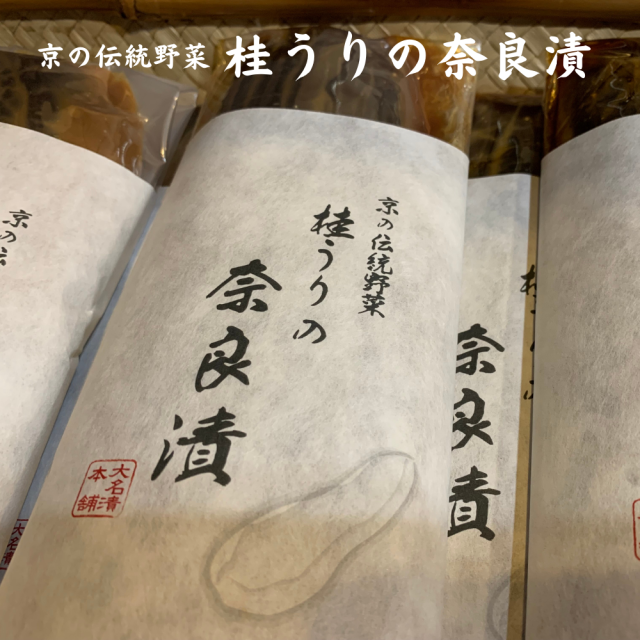 京の伝統野菜 桂うりの奈良漬
京の伝統野菜
桂うりの
奈良漬
大名漬
本舗
京の伝
奈良漬